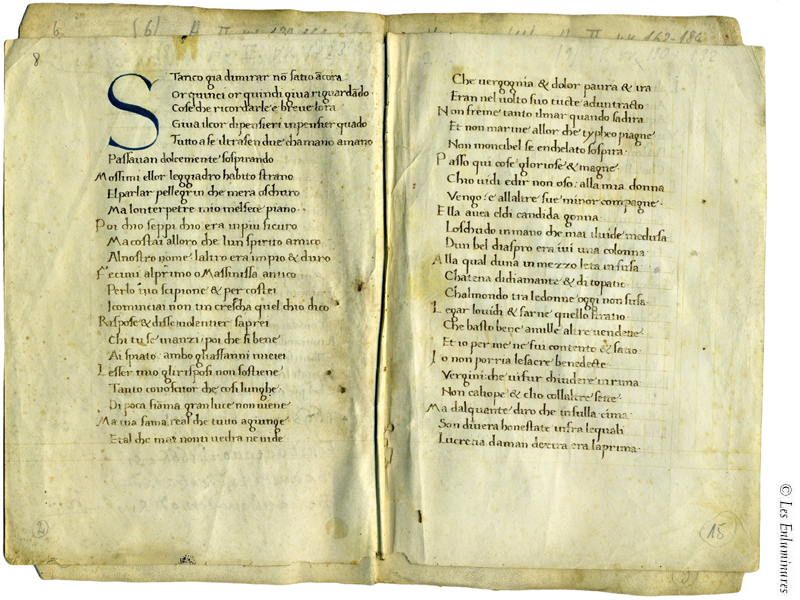 8
STanco gia dimirar nō satio ācora
Or quinci or quindi giua riguardādo
Cose che ricordarle e breue lora
Giua il cor di pensieri in pensier quādo
Tutto a se il trasēn due cha mano a mano
Passauan dolcemente sospirando
Mossimi ellor leggiadro habito strano
El parlar pellegrin che mera oschuro
Ma lonterpetre mio melfece piano
Poi chio seppi chio era in piu sicuro
Ma costai alloro che lun spirito amico
Al nostro nome laltro era impio & duro
Fecimi al primo o Massinissa antico
Per lo tuo scipione & per costei
Icominciai non tin crescha quel chio dico
Rispose & disse uolentier saprei
Chi tu se inanzi poi che si bene
Ai spiato ambo gli affanni miei
Lesser mio gli risposi non sostiene
Tanto conoscitor che cosi lunghe
Di poca fiāma gran luce non uiene
Ma tua fama real che tutto agiunge
Et al che mai non ti uedra ne uide
2
Che uergognia & dolor paura & ira
Eran nel uolto suo tucte aduntracto
Non freme tanto il mar quando sadira
Et non marine allor che typheo piagne
Non moncibel se enchelato sospira
Passo qui cose gloriose & magne
Chio uidi e dir non oso: alla mia donna
Vengo: & allaltre sue minor compagne
Ella auea el di candida gonna
Lo schudo in mano che mal iluide medusa
Dun bel diaspro era iui una colonna
Alla qual duna in mezzo leta infusa
Chatena di diamante & di topatio
Ch al mondo tra le donne oggi non susa
Legar louidi & farne quello stratio
Che basto bene a mille altre uendette
Et io per me ne fui contento & satio
Io non porria le sacre benedecte
Vergini: che ui fur chiudere in rima
Non caliope & clio collaltre sette
Ma dalquante diro che in sulla cima
Son di uera honestate infra le quali
Lucretia da man dextra era la prima
15
© Les Enluminures